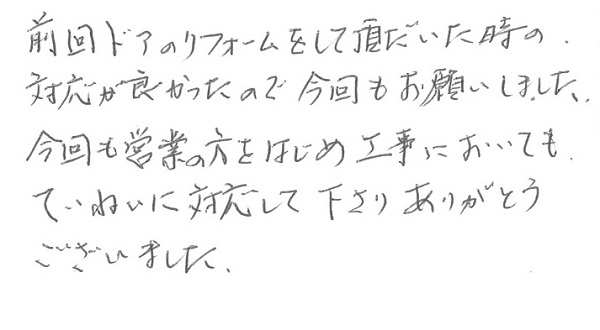 前回ドアのリフォームをして頂だいた時の
対応が良かったので今回もお願いしました。
今回も営業の方をはじめ工事においても
ていねいに対応して下さりありがとう
ございました。